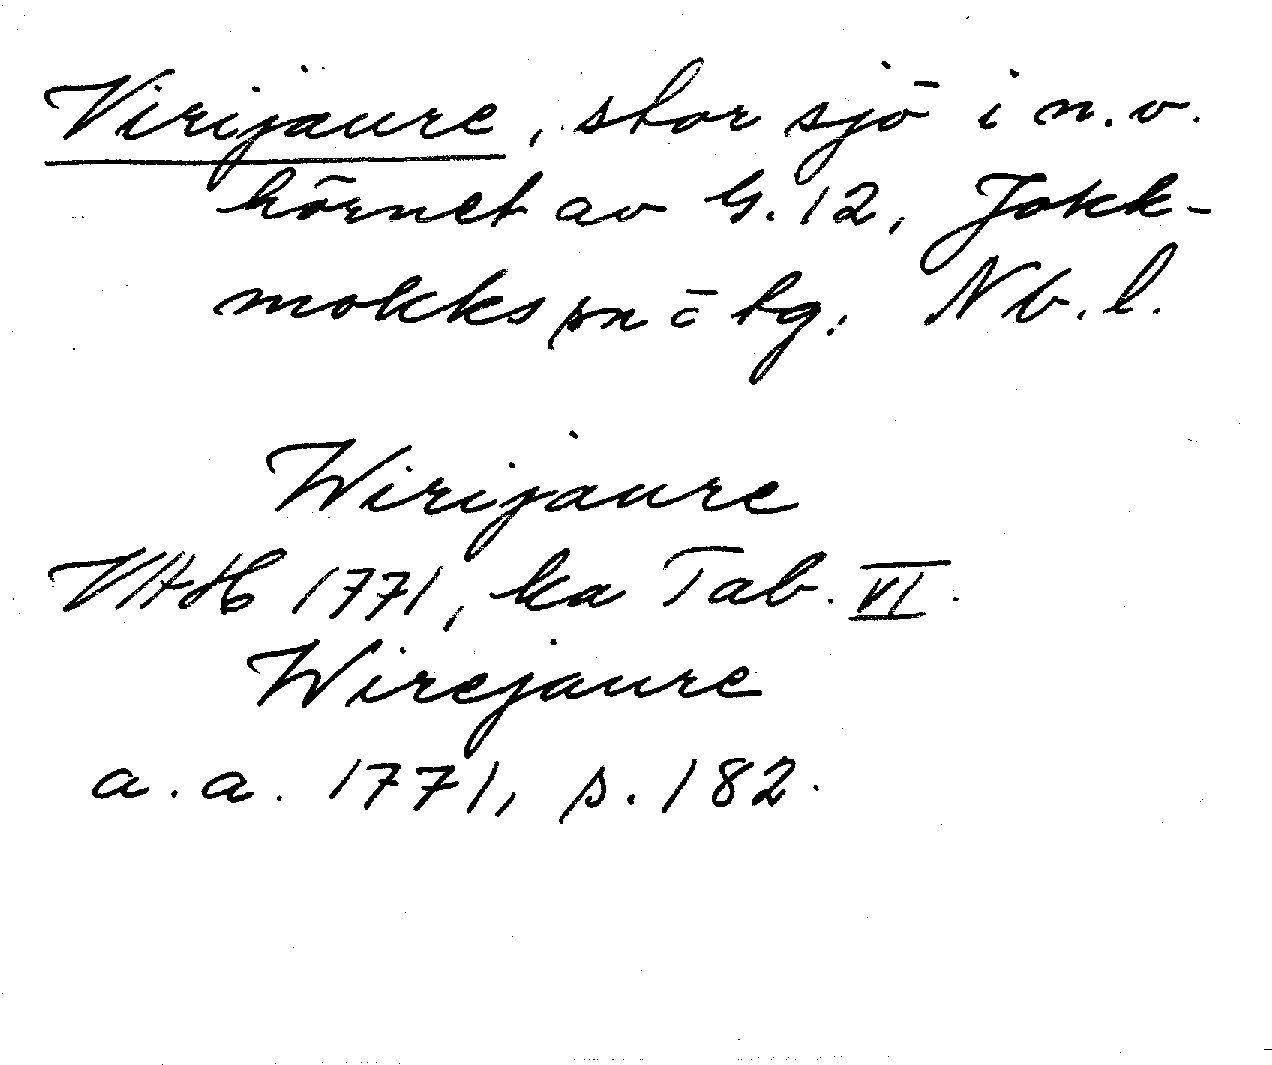 Virijaure, stor sjö i n.v.
hörnet av G. 12, Jokk-
mokks sn o tg. Nb. l.
Wirijaure
VAH 1771, ka Tab. VI.
Wirejaure
a. a. 1771, s. 182.